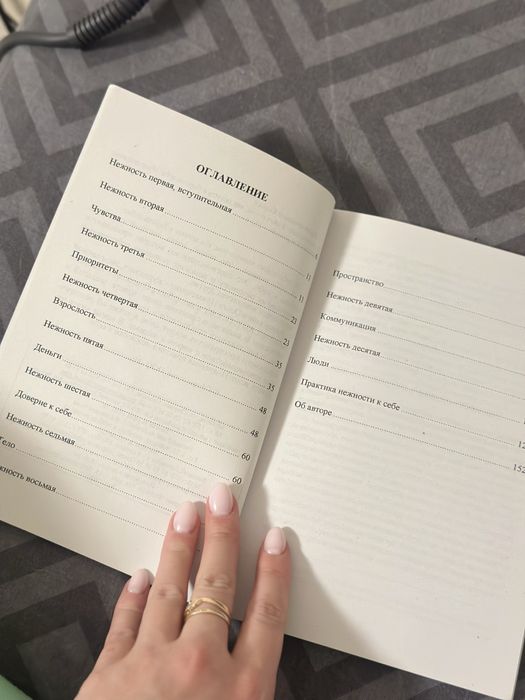 ОГЛАВЛЕНИЕ
Нежность первая, вступительная
Нежность вторая 11
Чувства 11
Нежность третья 23
Приоритеты 23
Нежность четвертая 35
Взрослость 35
Нежность пятая 48
Деньги 48
Нежность шестая 60
Доверие к себе 60
Нежность седьмая
Тело
восьмая
Пространство
Нежность девятая
Коммуникация
Нежность десятая
Люди
Практика нежности к себе
Об авторе 152